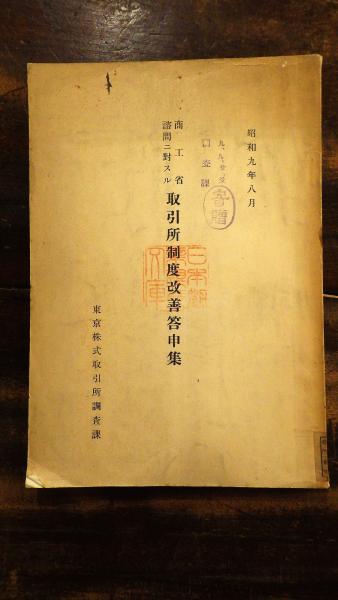 昭和九年八月
寄贈
商工省
諮問ニ對スル
取引所制度改善答申集
東京株式取引所調査課